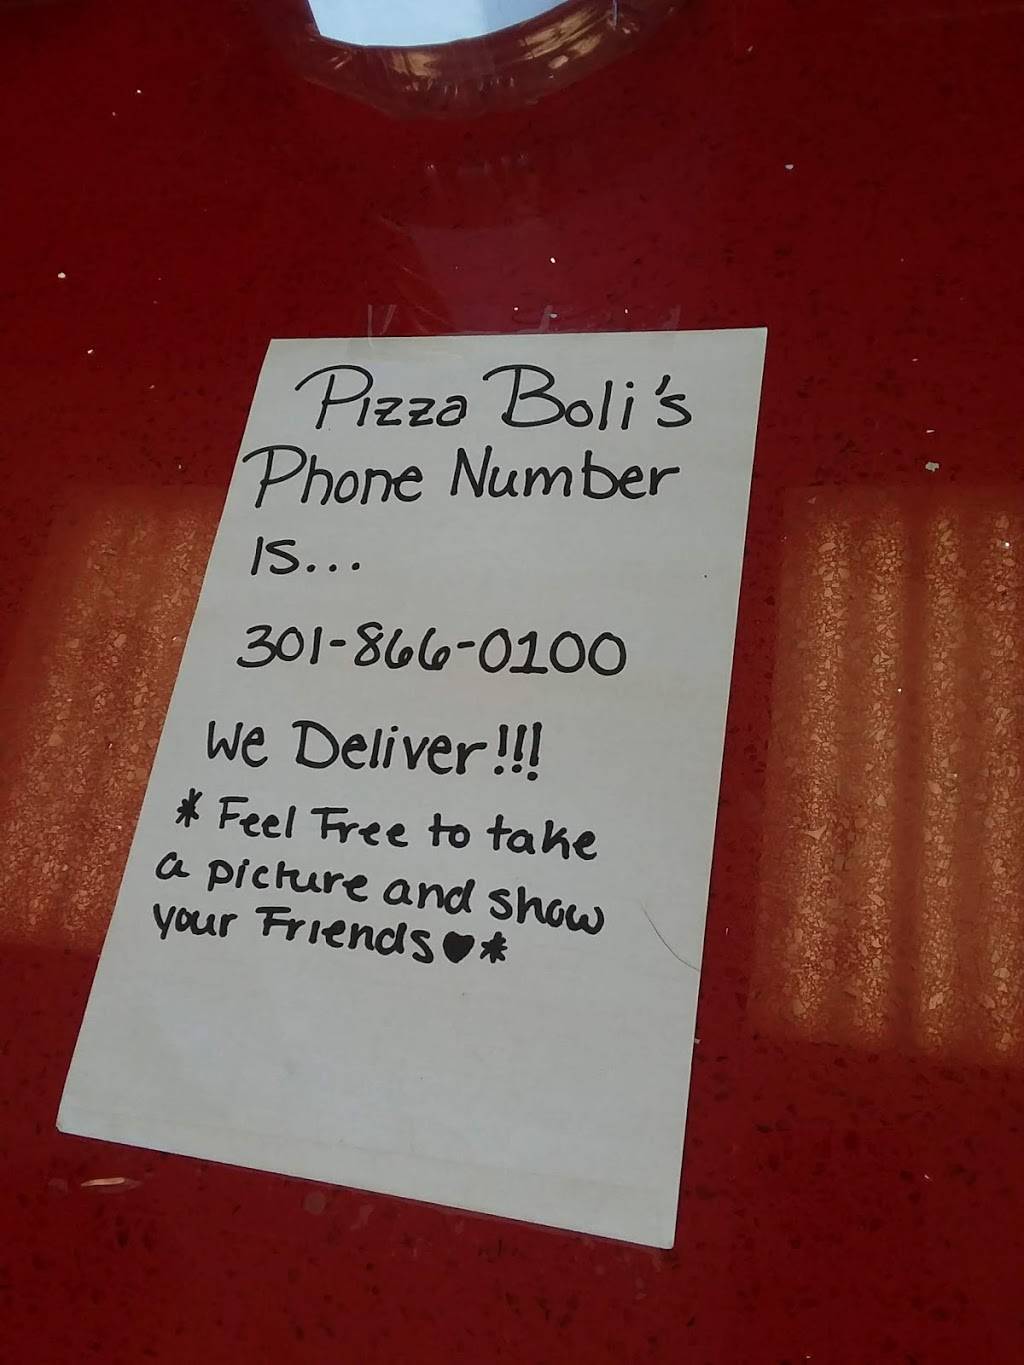 Pizza Boli's
Phone Number
is...
301-866-0100
We Deliver!!!
* Feel Free to take
a picture and show
your Friends♥*